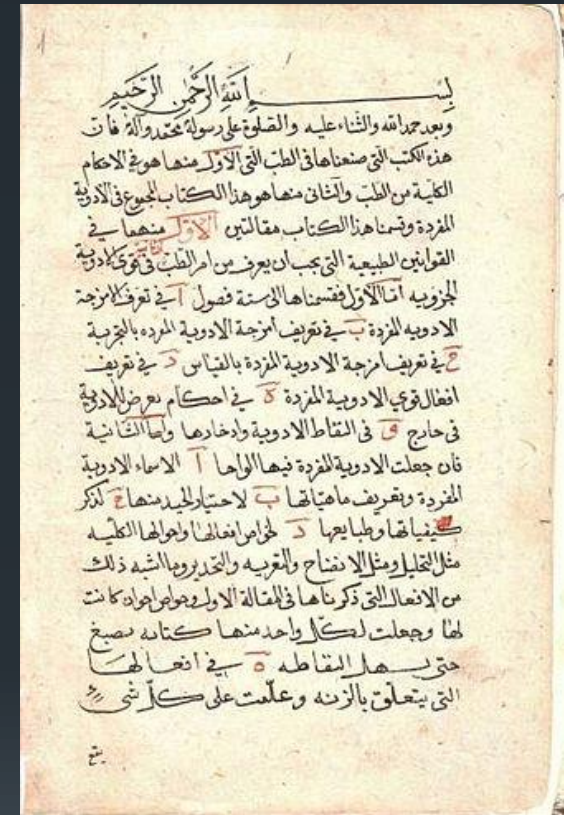 بسم الله الرحمن الرحيم
وبعد حمد الله والثناء عليه والصلوة على رسولة محمد وآلة فان
هذه الكتب التى صنعناها فى الطب التى الاول منها هو فى الاحكام
الكلية من الطب والثانى منها هو هذا الكتاب المجموع فى الادوية
المفردة وقسمنا هذا الكتاب مقالتين الاول منهما في
القوانين الطبيعية التى يجب ان يعرف من امر الطب فى قوى الادوية
الجزويه امّا الاول فقسمناها الى ستة فصول آ فى تعرف الامزجة
الادويه المفردة ب في تعريف امزجة الادوية المفرده بالتجربة
ج في تعريف امزجة الادوية المفردة بالقياس د في تعريف
افعال قوى الادوبية المفردة ه في احكام يعرض للادوية
فى خارج و فى التقاط الادوية وادخارها واما الثانية
فان جعلت الادوية المفردة فيها الواحا آ الاسماء الادوية
المفردة وتعريف ماهياتها ب لاختيار الجيد منها ج لذكر
كيفياتها وطبايعها د لخواص افعالها واحوالها الكليه
مثل التحليل ومثل الانضاح والتغريه والتخدير وما اشبه ذلك
من الافعال التى ذكرناها فى المقالة الاول وخواص اخوان كانت
لها وجعلت لكل واحد منها كتابه بصبغ
حتى يسهل التقاطه ه في افعالها
التى يتعلق بالزنه وعلّمت على كلّ شى
يقع